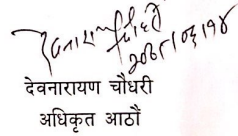 २०८१।०३।१४
देवनारायण चौधरी
अधिकृत आठौं